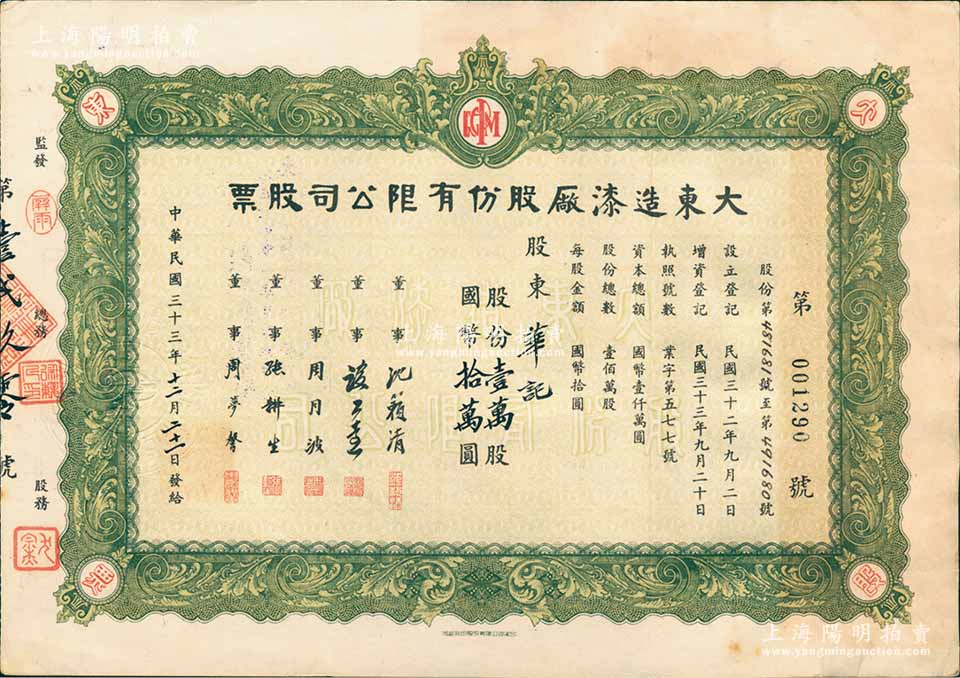 上海陽明拍賣
www.yangmingauction.com
大東造漆廠股份有限公司股票
第 001290 號
股份第481681號至第491680號
設立登記 民國三十二年九月二日
增資登記 民國三十三年九月二十日
執照號數 業字第五七七號
資本總額 國幣壹仟萬圓
股份總數 壹佰萬股
每股金額 國幣拾圓
股東 華記
股份壹萬股
國幣拾萬圓
董事
董事
董事 周月波
董事
董事 周夢馨
中華民國三十三年十二月二十一日發給
監發
總務
股務
第壹貳久零號
上海陽明拍賣
www.yangmingauction.com
上海陽明拍賣
www.yangmingauction.com